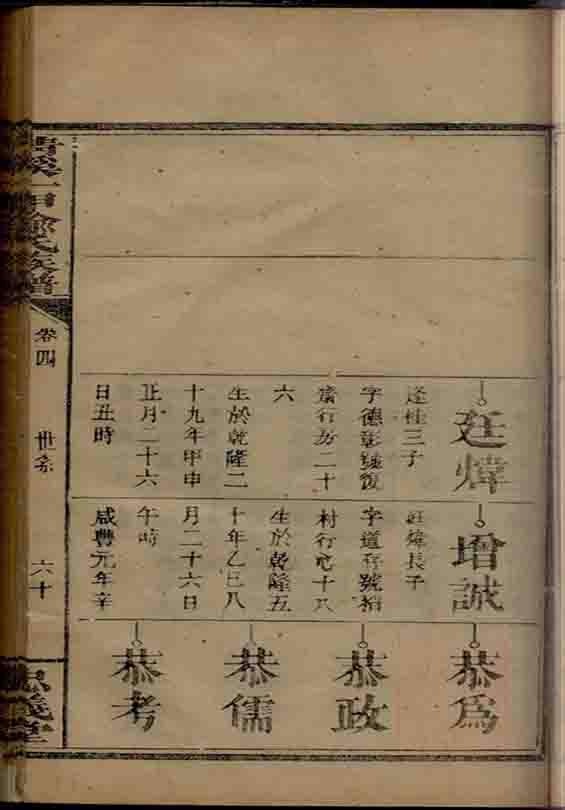 廷煒
逢桂三子
字德彰號復
齋行 二十
六
生於乾隆二
十九年甲申
正月二十六
日丑時
增誠
廷煒長子
字道存號
村行 十八
生於乾隆五
十年乙巳八
月二十六日
午時
咸豐元年辛
恭爲
恭政
恭儒
恭考
溪一甲徐氏族譜
卷四
世系
六十
忠義堂